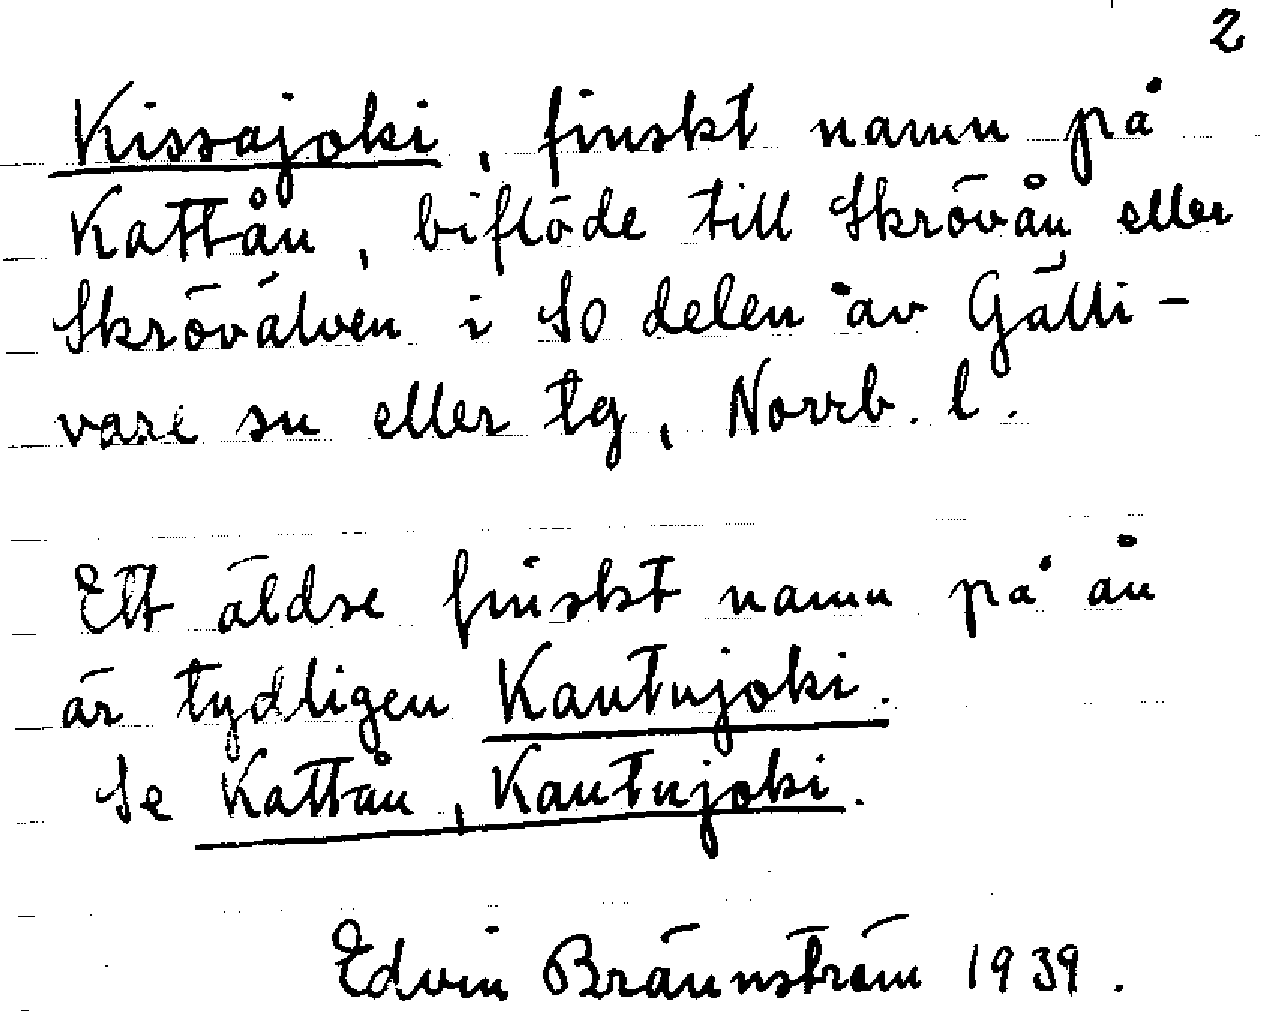 2
Kissajoki, finskt namn på
Kattån, biflöde till Skrövån eller
Skrövälven i SO delen av Gälli-
vare sn eller tg, Norrb. l.
Ett äldre finskt namn på ån
är tydligen Kautujoki.
Se Kattån, Kautujoki.
Edvin Brännström 1939.